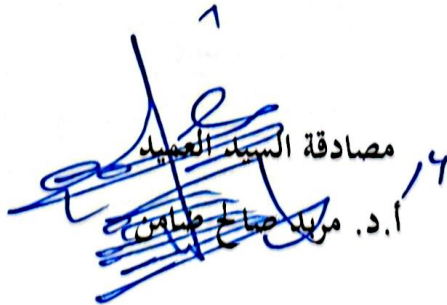 مصادقة السيد العميد
أ.د. مريد صالح ضامن